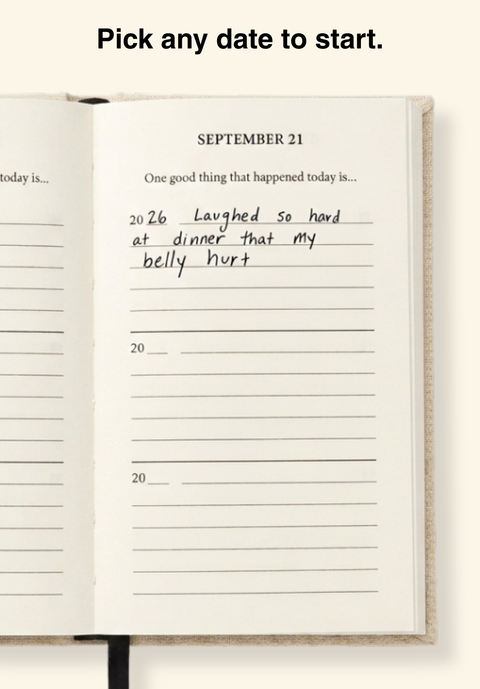 Pick any date to start.
today is...
SEPTEMBER 21
One good thing that happened today is...
2026 Laughed so hard
at dinner that my
belly hurt
20__
20__